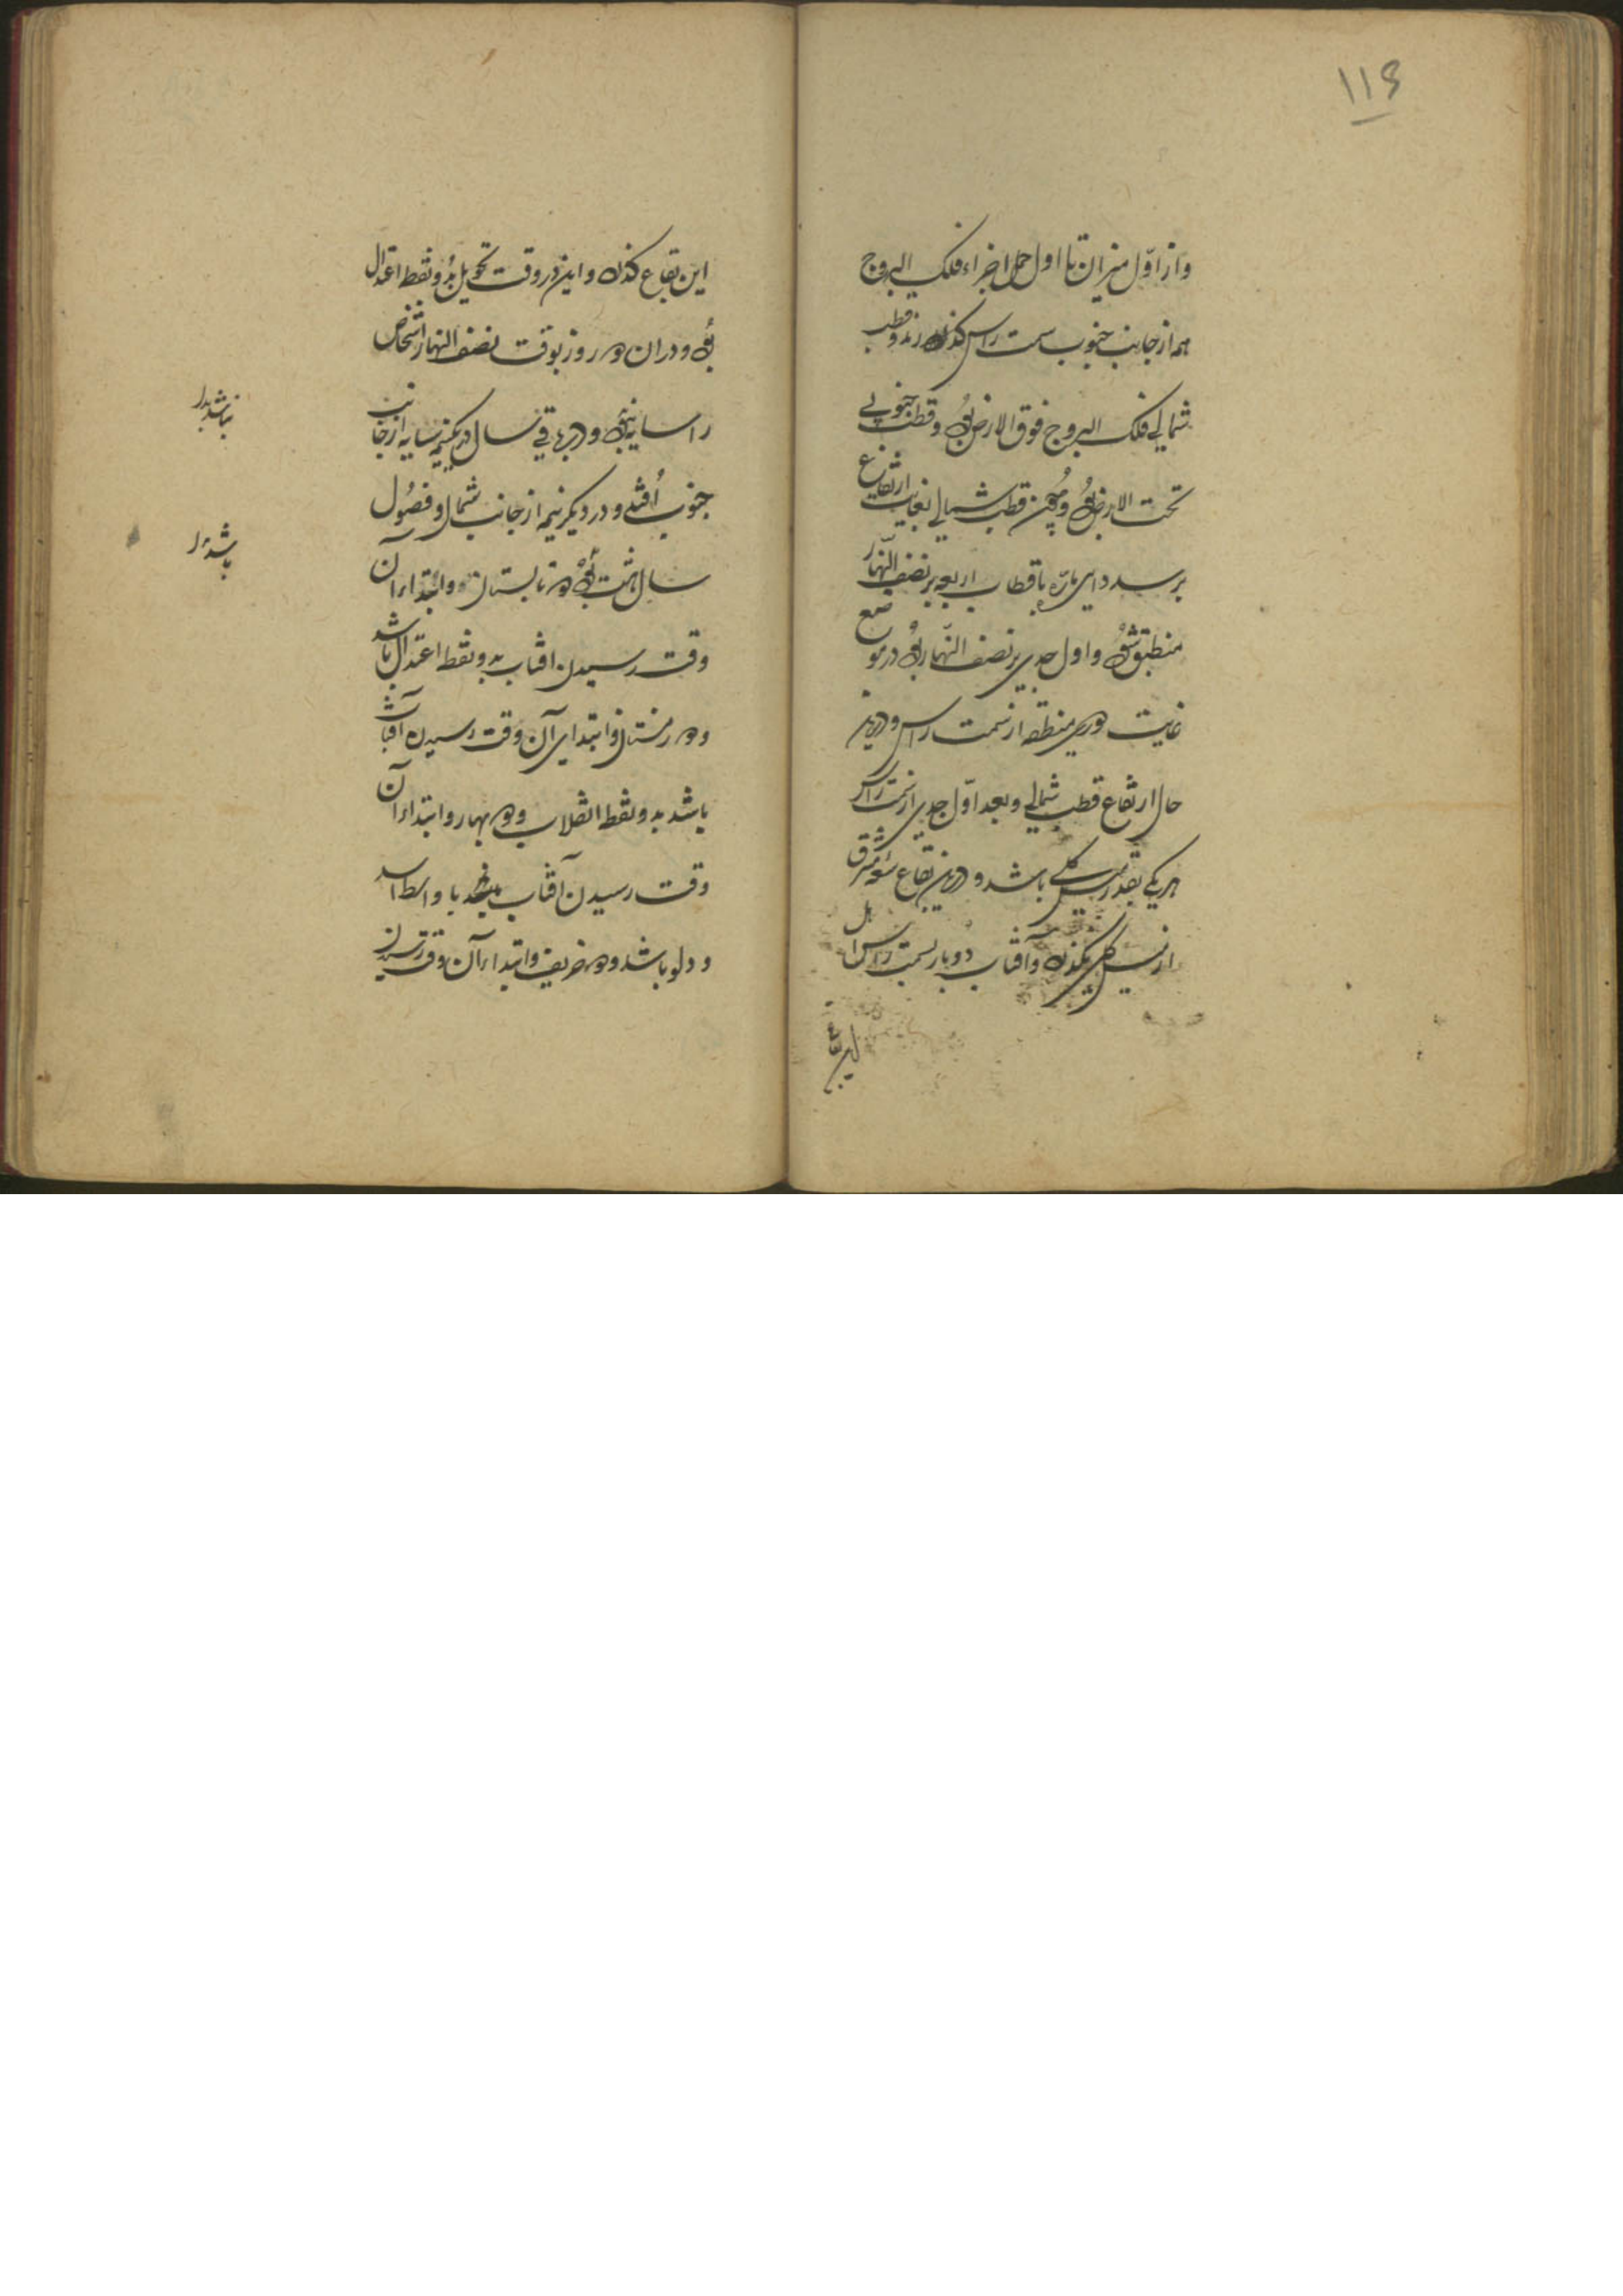 ۱۱۶
و از اوّل میزان تا اول حمل اجزاء فلک البروج
همه از جانب جنوب سمت راس کذرند و قطب
شمالی فلک البروج فوق الارض بود و قطب جنوبی
تحت الارض بود و همچنین قطب شمالی بغایت ارتفاع
برسد و دایره مارّه باقطاب اربعه بر نصف النّهار
منطبق شود و اول جدی بر نصف النّهار بود در موضع
غایت دوری منطقه از سمت راس و درین
حال ارتفاع قطب شمالی و بعد اوّل جدی از سمت راس
هر یکی بقدر میل کلی باشد و درین بقاع سعة مشرق
از میل کلی نکذرد و آفتاب دو بار بسمت راس اهل
این بقاع
این بقاع کذرد و این در وقت تحویل بدو نقطه اعتدال
بود و در ان دو روز بوقت نصف النهار اشخاص
را سایه نبود و در باقی سال در یکنیمه سایه از جانب
جنوب افتد و در دیکر نیمه از جانب شمال و فصول
سال هشت بود دو تابستان و ابتداء آن
وقت رسیدن افتاب بدو نقطه اعتدال باشد
و دو زمستان و ابتدای آن وقت رسیدن آفتاب
باشد بدو نقطه انقلاب و دو بهار و ابتداء آن
وقت رسیدن آفتاب باواسط اسد
و دلو باشد و دو خریف و ابتداء آن وقت رسیدن
نباشد
باشد